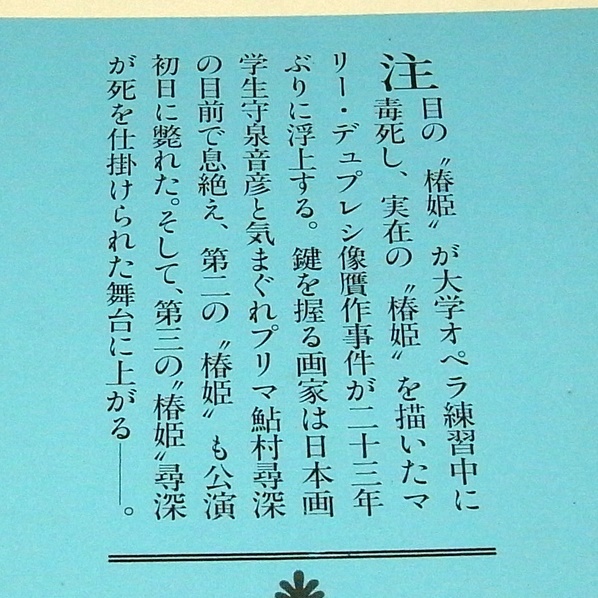 注目の〝椿姫〟が大学オペラ練習中に
毒死し、実在の〝椿姫〟を描いたマ
リー・デュプレシ像贋作事件が二十三年
ぶりに浮上する。鍵を握る画家は日本画
学生守泉音彦と気まぐれプリマ鮎村尋深
の目前で息絶え、第二の〝椿姫〟も公演
初日に斃れた。そして、第三の〝椿姫〟尋深
が死を仕掛けられた舞台に上がる――。